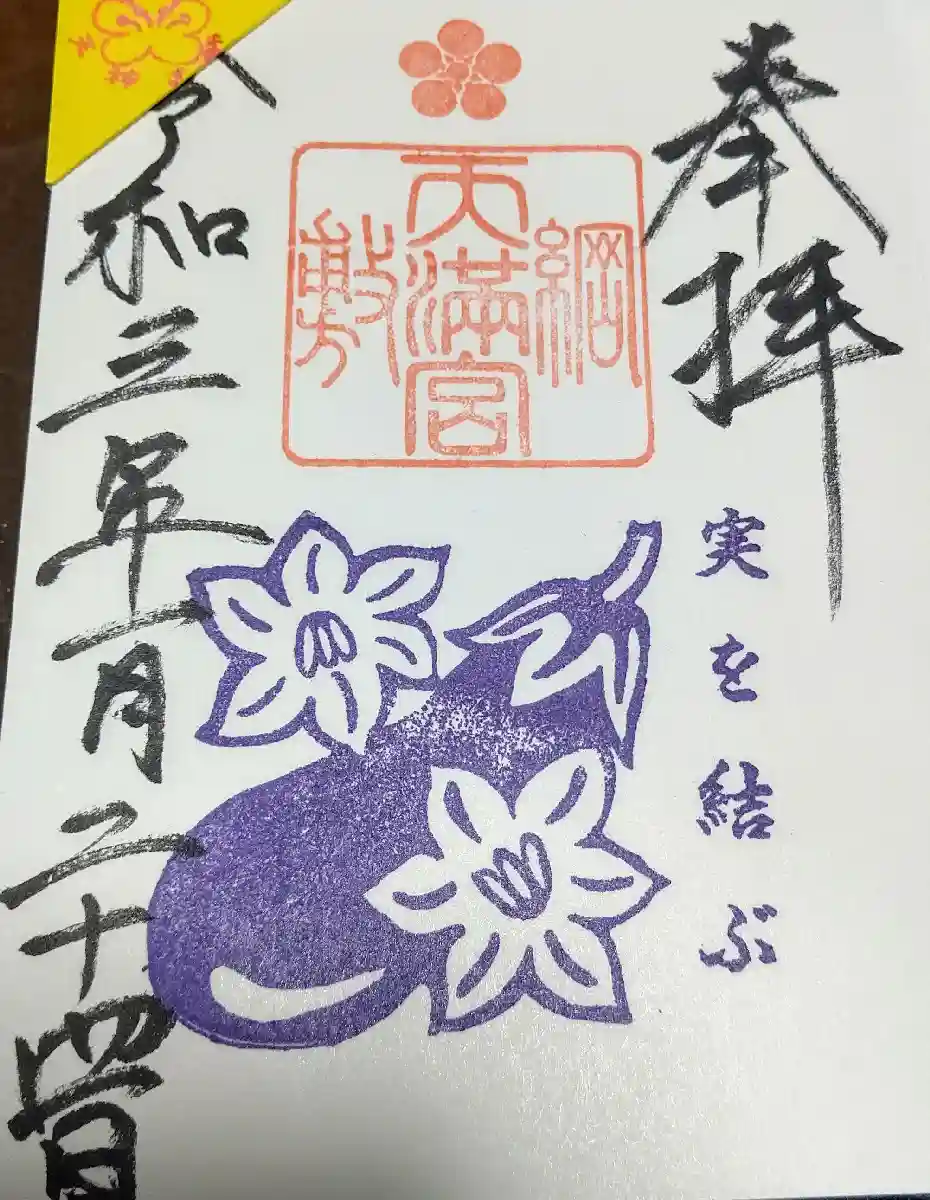 奉拝
実を結ぶ
綱敷
天満宮
令和三年一月二十四日